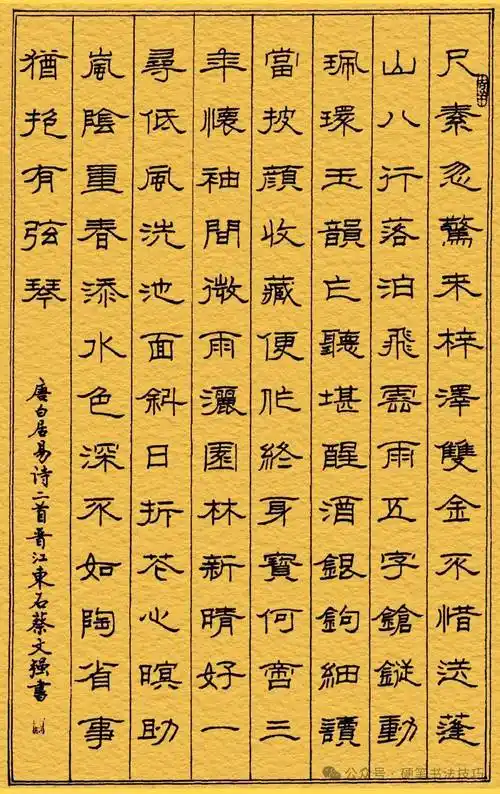 尺素忽驚来梓澤雙金不惜送蓬
山八行落泊飛雲雨五字鎗鏦動
珮環玉韻乍聽堪醒酒銀鉤細讀
當披顔收藏便作終身寳何啻三
年懷袖間微雨灑園林新晴好一
尋低風洗池面斜日折花心暝助
嵐陰重春添水色深不如陶省事
猶抱有弦琴
唐白居易诗二首晋江東石蔡文强書
公众号·硬笔书法技巧